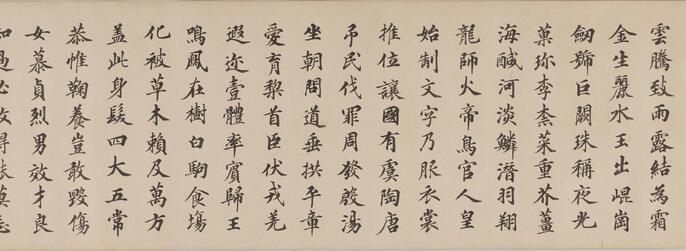 雲騰致雨露結為霜
金生麗水玉出崐崗
劒號巨闕珠稱夜光
菓珎李柰菜重芥薑
海醎河淡鱗潛羽翔
龍師火帝鳥官人皇
始制文字乃服衣裳
推位讓國有虞陶唐
吊民伐罪周發殷湯
坐朝問道垂拱平章
愛育黎首臣伏戎羌
遐迩壹體率賓歸王
鳴鳳在樹白駒食場
化被草木賴及萬方
蓋此身髮四大五常
恭惟鞠養豈敢毀傷
女慕貞烈男效才良